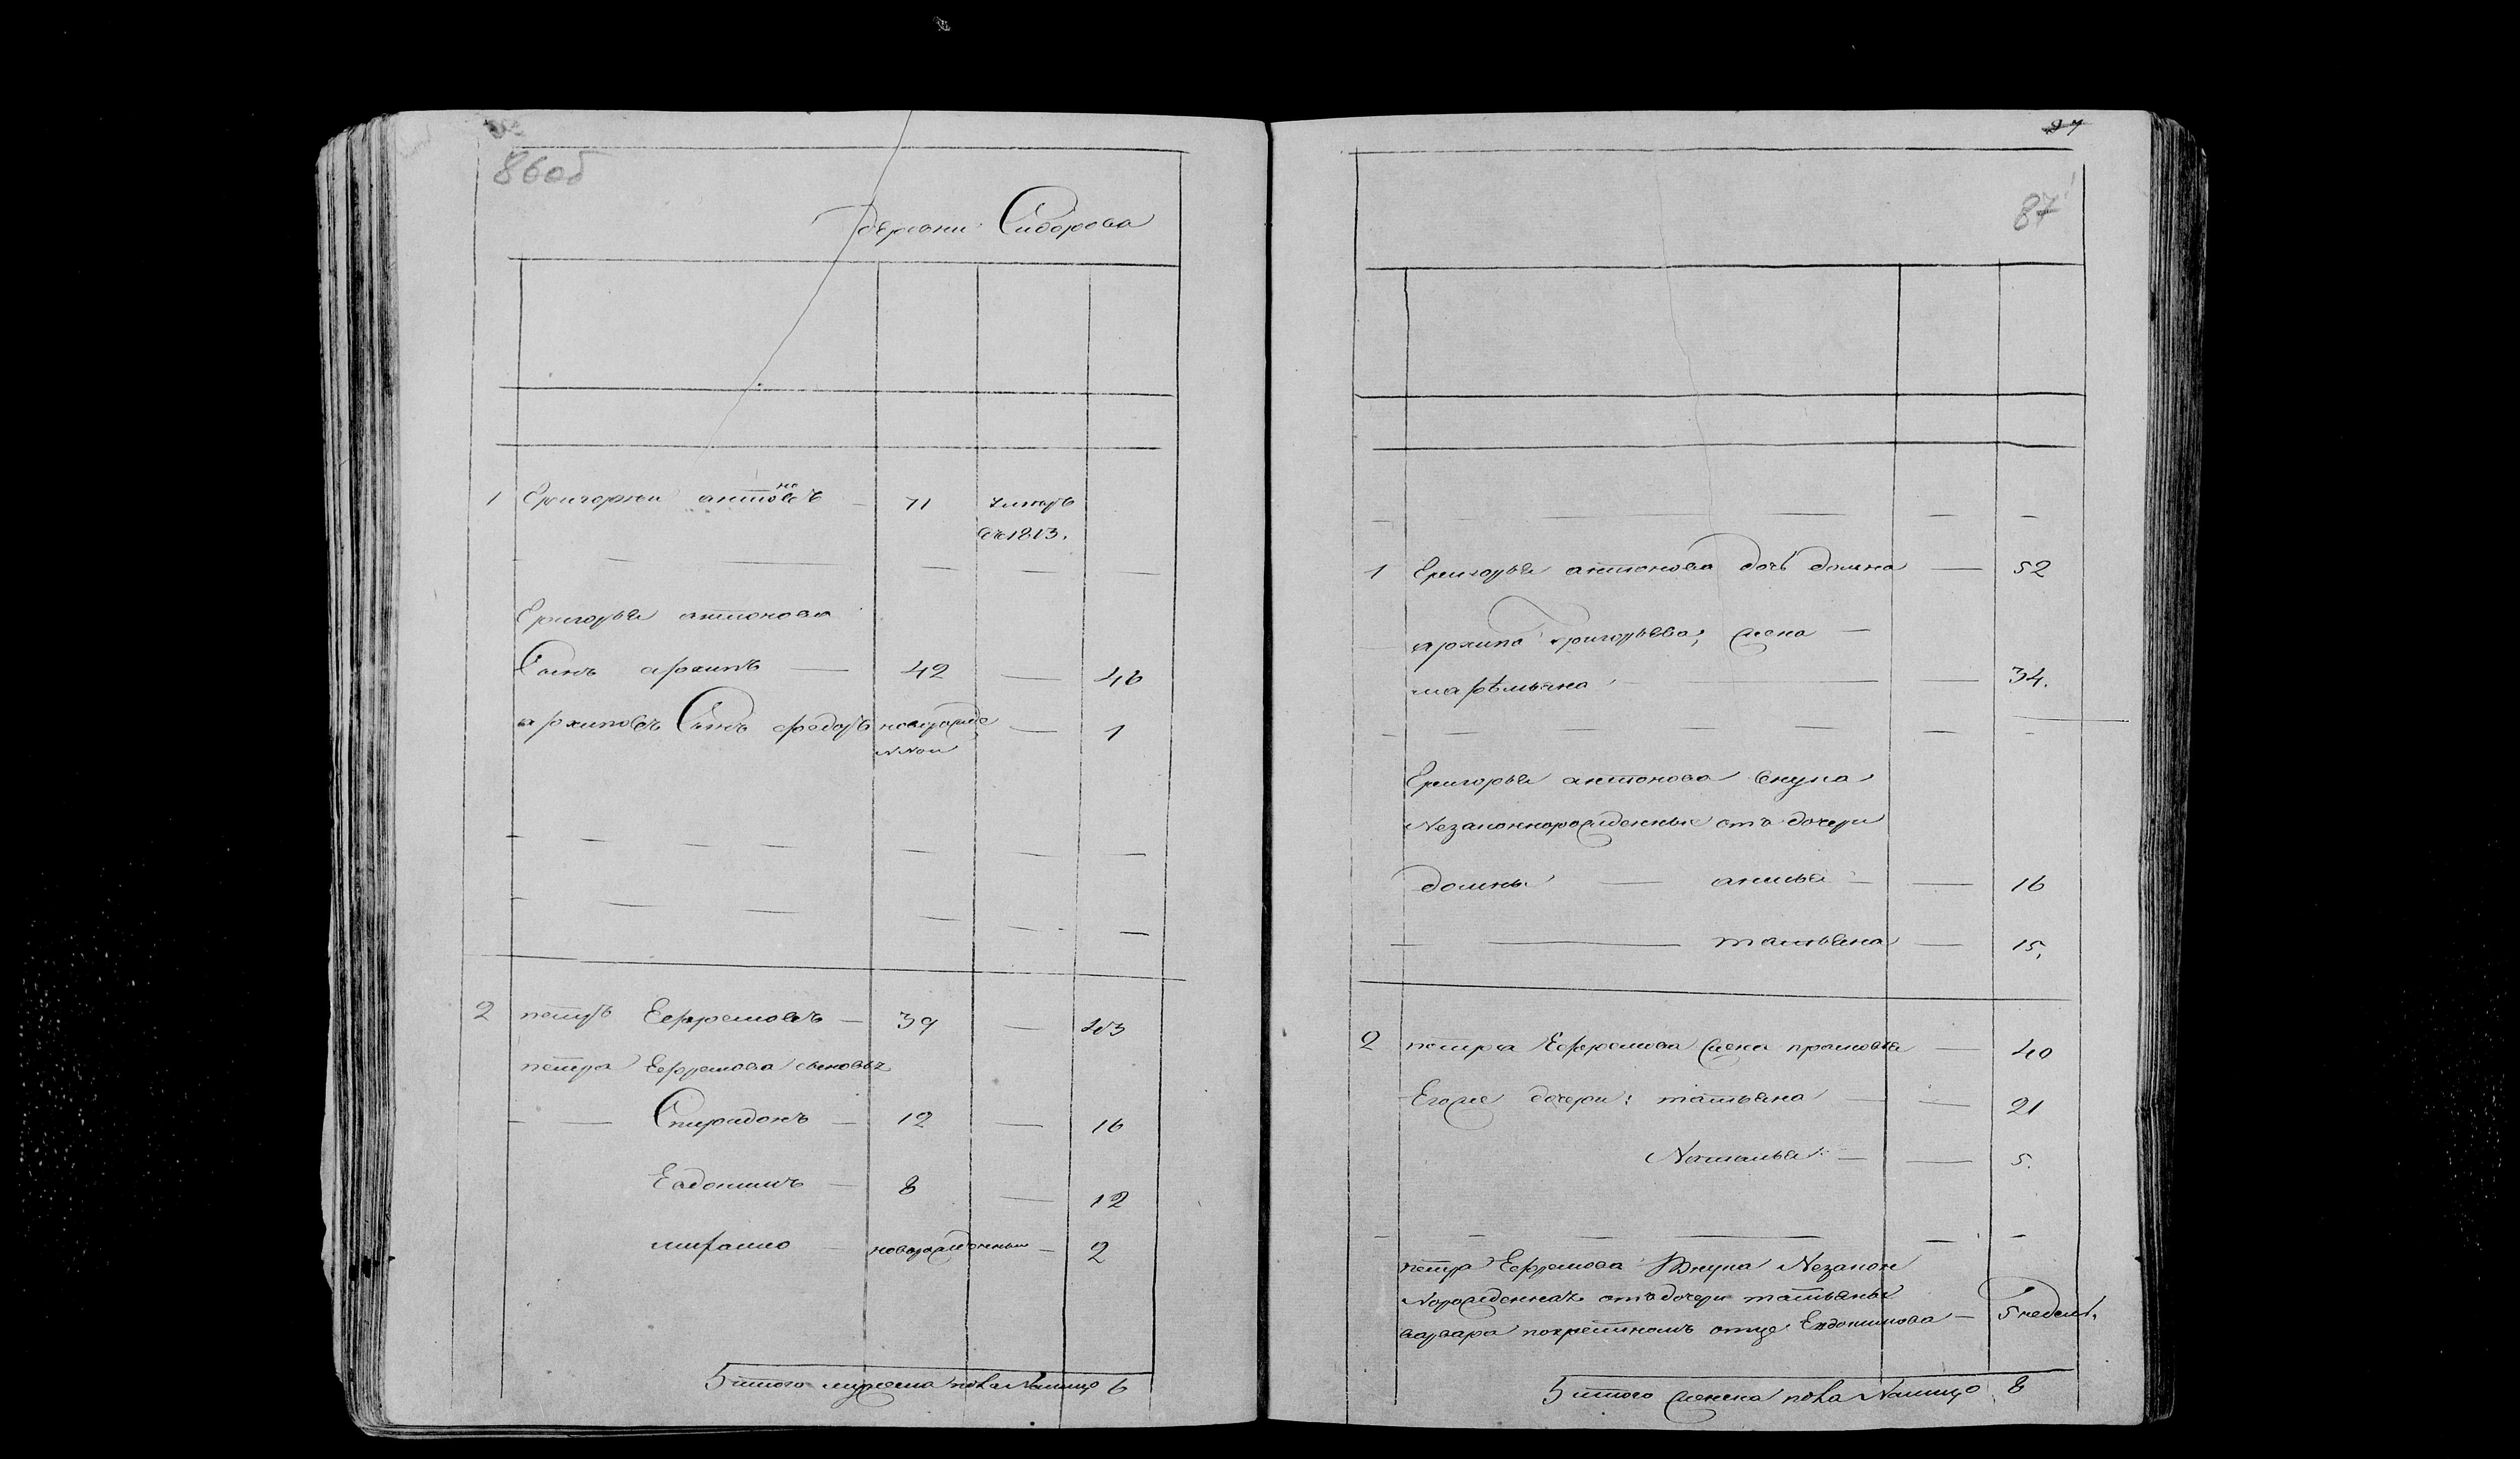 86об
деревни Сидорова
1 Григореи антоновъ — 71 умеръ
въ 1813.
Григорья антонова
Сынъ архипъ — 42 — 46
архиповъ Сынъ федоръ новорожде — 1
нной
2 петръ Ефремовъ — 39 — 43
петра Ефремова сыновья
Спиридонъ — 12 — 16
Евдокимъ — 8 — 12
михаило — новорожденныи — 2
5 итого мужеска пола налицо 6
87
87
1 Григорья антонова дочь домна — 52
архипа григорьева, жена —
марѣмьяна — 34.
Григорья антонова внука
Незаконнорожденные отъ дочери
домны — анисья — 16
— татьяна — 15,
2 петра Ефремова жена прасковья — 40
Егоже дочери: татьяна — 21
Наталья — 5.
петра Ефремова Внука Незакон
Норожденная отъ дочери татьяны
варвара покрестномъ отце Евдокимова — 5 недель.
5 итого женска пола Налицо 8